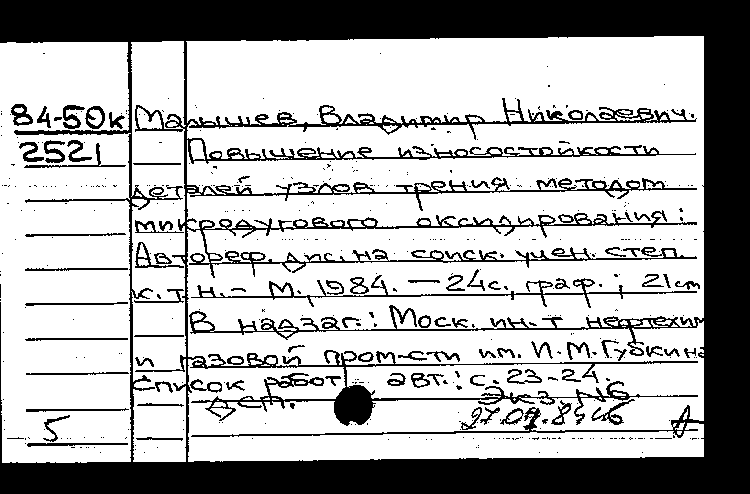 84-50к Малышев, Владимир Николаевич.
2521 Повышение износостойкости
деталей узлов трения методом
микродугового оксидирования:
Автореф. дис. на соиск. учен. степ.
к.т.н. - М., 1984. — 24с., граф.; 21cm
В надзаг.: Моск. ин-т нефтехим
и газовой пром-сти им. И.М.Губкина
Список работ авт.: с. 23-24.
Экз. N6.
5